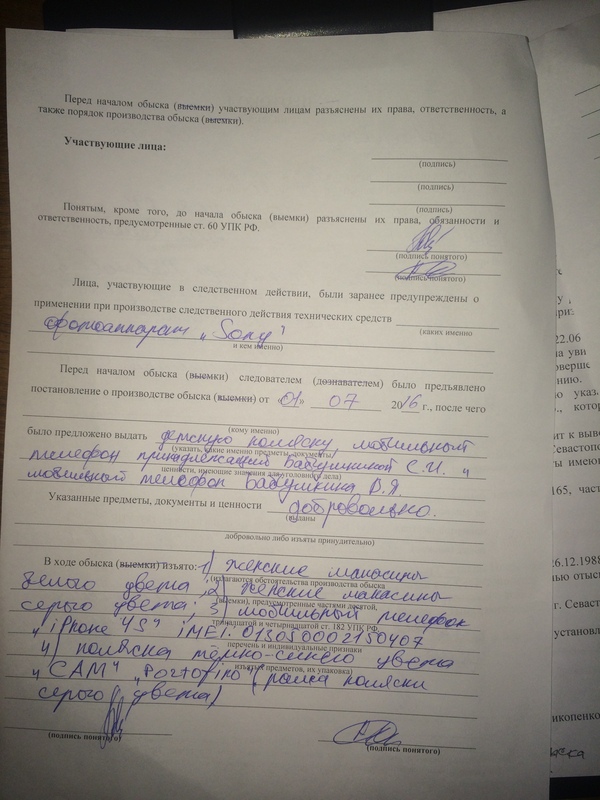 Перед началом обыска (выемки) участвующим лицам разъяснены их права, ответственность, а
также порядок производства обыска (выемки).
Участвующие лица:
(подпись)
(подпись)
(подпись)
Понятым, кроме того, до начала обыска (выемки) разъяснены их права, обязанности и
ответственность, предусмотренные ст. 60 УПК РФ.
(подпись понятого)
(подпись понятого)
Лица, участвующие в следственном действии, были заранее предупреждены о
применении при производстве следственного действия технических средств
(каких именно
фотоаппарат „Sony"
и кем именно)
Перед началом обыска (выемки) следователем (дознавателем) было предъявлено
постановление о производстве обыска (выемки) от «01» 07 2016 г., после чего
(кому именно)
было предложено выдать детскую коляску, мобильный
(указать, какие именно предметы, документы,
телефон принадлежащий Бабушкиной С.И. и
ценности, имеющие значение для уголовного дела)
мобильный телефон Бабушкина В.Я.
Указанные предметы, документы и ценности добровольно.
(выданы
добровольно либо изъяты принудительно)
В ходе обыска (выемки) изъято: 1) женские макасины
(излагаются обстоятельства производства обыска
белого цвета; 2) женские макасины
(выемки), предусмотренные частями десятой,
серого цвета; 3) мобильный телефон
тринадцатой и четырнадцатой ст. 182 УПК РФ,
„iPhone 4S" iMEi: 013050002150407
перечень и индивидуальные признаки
4) коляска тёмно-синего цвета
изъятых предметов, их упаковка)
„CAM" „Portofino" (рамка коляски
серого цвета)
(подпись понятого)
(подпись понятого)
22.06
165, част
26.12.1988
г. Севаст